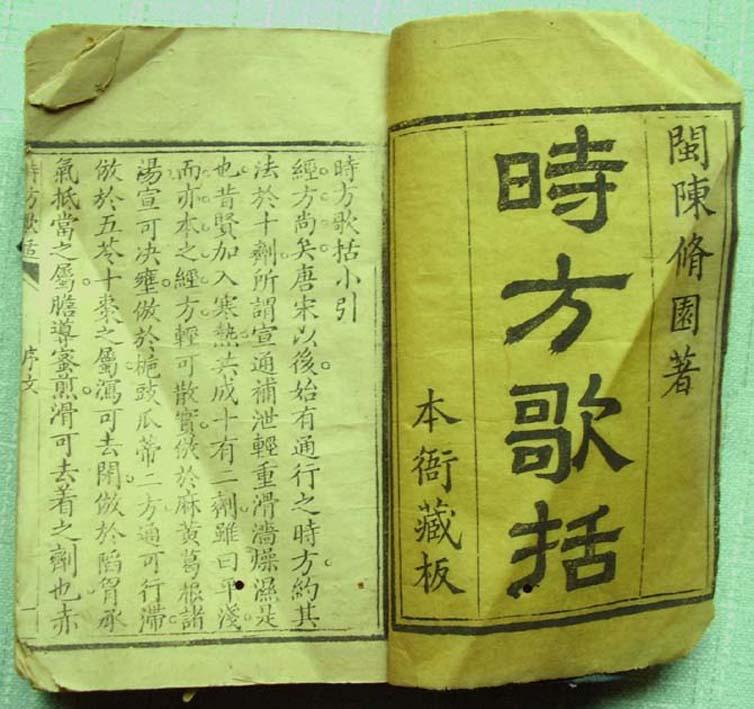 閩陳脩園著
時方歌括
本衙藏板
時方歌括小引
經方尚矣唐宋以後始有通行之時方約其
法於十劑所謂宣通補泄輕重滑濇燥濕是
也昔賢加入寒熱共成十有二劑雖曰平淺
而亦本之經方輕可散實倣於麻黃葛根諸
湯宣可决壅倣於梔豉瓜蒂二方通可行滯
倣於五苓十棗之屬瀉可去閉倣於陷胷承
氣抵當之屬膽導蜜煎滑可去着之劑也赤
時方歌括 序文 一